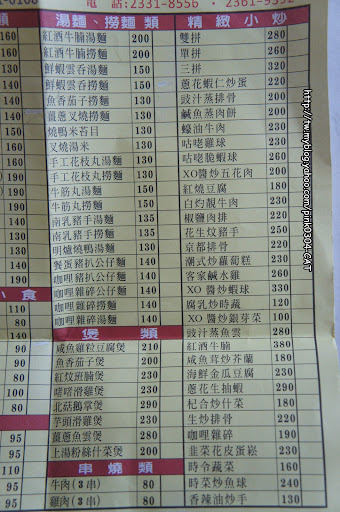 電話:2331-8556 · 2361-9592
湯麵、撈麵類
紅酒牛腩湯麵 200
紅酒牛腩撈麵 200
鮮蝦雲吞湯麵 150
鮮蝦雲吞撈麵 150
魚香茄子撈麵 140
薑蔥叉燒撈麵 150
燒鴨米苔目 150
叉燒湯米 130
手工花枝丸湯麵 130
手工花枝丸撈麵 130
牛筋丸湯麵 150
牛筋丸撈麵 150
南乳豬手湯麵 150
南乳豬手撈麵 150
明爐燒鴨湯麵 150
餐蛋豬扒公仔麵 140
咖哩豬扒公仔麵 140
咖哩雜碎公仔麵 140
咖哩雜碎撈麵 140
咖哩雜碎湯麵 140
煲類
咸魚雞粒豆腐煲 210
魚香茄子煲 200
紅炆班腩煲 230
啫啫滑雞煲 230
北菇鵝掌煲 290
芋頭滑雞煲 230
薑蔥魚雲煲 280
上湯粉絲什菜煲 200
串燒類
牛肉(3串) 80
雞肉(3串) 80
精緻小炒
雙拼 280
單拼 260
三拼 320
蔥花蝦仁炒蛋 220
豉汁蒸排骨 200
鹹魚蒸肉餅 200
蠔油牛肉 230
咕咾雞球 230
咕咾脆蝦球 260
XO醬炒五花肉 200
紅燒豆腐 180
白灼靚牛肉 230
椒鹽肉排 220
花生炆豬手 250
京都排骨 220
潮式炒蘿蔔糕 230
客家鹹水雞 260
XO 醬炒蝦球 330
腐乳炒時蔬 120
XO 醬炒銀芽菜 100
豉汁蒸魚雲 280
紅酒牛腩 380
咸魚茸炒芥蘭 180
海鮮金瓜豆腐 230
蔥花生抽蝦 290
杞合炒什菜 180
生炒排骨 220
咖哩雜碎 190
韭菜花皮蛋崧 230
時令蔬菜 160
時菜炒魚球 240
香辣油炒手 130
小食
http://tw.myblog.yahoo.com/pink0304-CAT